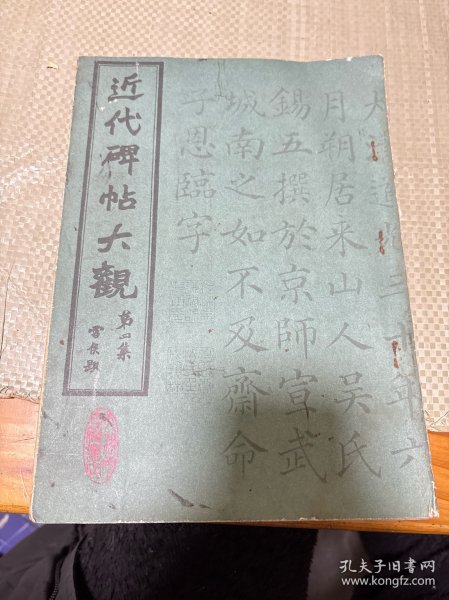 近代碑帖大觀
第四集
大清道光三十年六
月朔居来山人吴氏
錫五撰於京師宣武
城南之如不及齋命
子恩臨字
孔夫子旧书网
www.kongfz.com